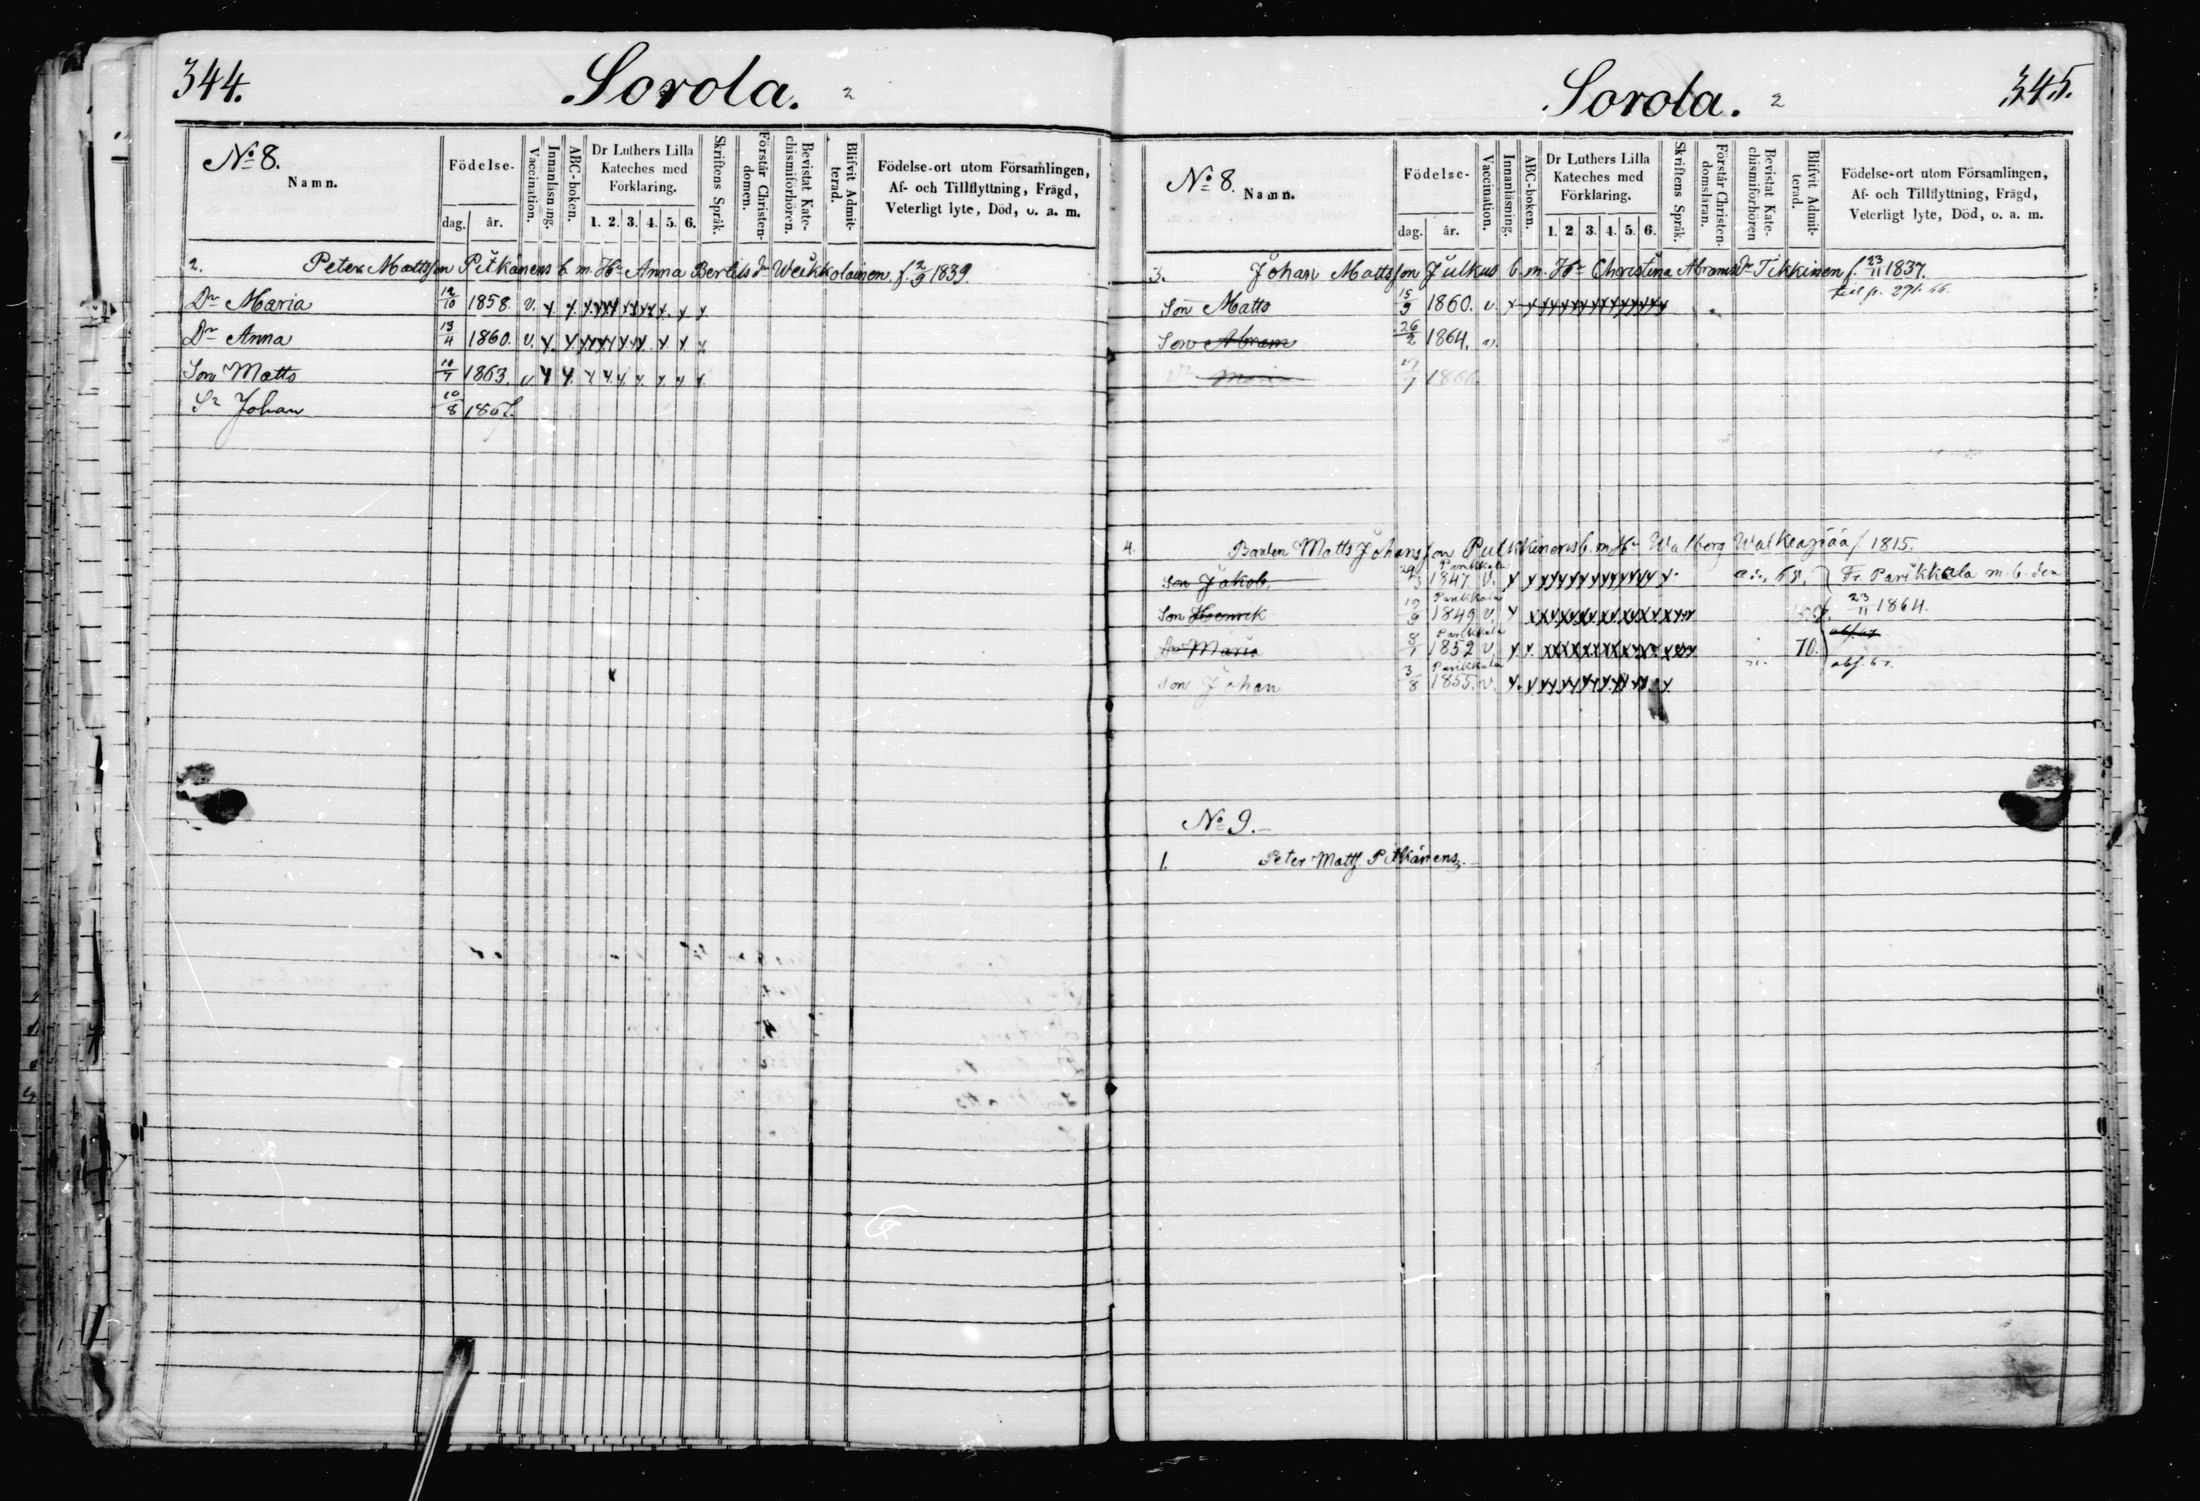 344.
Sorola. 2
No 8.
Namn.
Födelse-
dag. år.
Vaccination.
Innanläsning.
ABC-boken.
Dr Luthers Lilla
Kateches med
Förklaring.
1. 2. 3. 4. 5. 6.
Skriftens Språk.
Förstår Christen-
domen.
Bevistat Kate-
chismiförhören.
Blifvit Admit-
terad.
Födelse-ort utom Församlingen,
Af- och Tillflyttning, Frägd,
Veterligt lyte, Död, o. a. m.
2. Peter Mattsson Pitkänens b. m. Hu Anna Bertilsdr Weikkolainen f. 2/9 1839.
Dr Maria 12/10 1858. v.
Dr Anna 13/4 1860. v.
Son Matts 1863. v
Sn Johan 10/8 186
345.
Sorola. 2
No 8.
Namn.
Födelse-
dag. år.
Vaccination.
Innanläsning.
ABC-boken.
Dr Luthers Lilla
Kateches med
Förklaring.
1. 2. 3. 4. 5. 6.
Skriftens Språk.
Förstår Christen-
domsläran.
Bevistat Kate-
chismiförhören
Blifvit Admit-
terad.
Födelse-ort utom Församlingen,
Af- och Tillflyttning, Frägd,
Veterligt lyte, Död, o. a. m.
3. Johan Mattsson Julkus b. m. Hu Christina Abramsdr Tikkinen f. 23/11 1837.
Son Matts 15/9 1860. v.
Son Abram 26/2 1864. v.
Maria
4. Matts Johansson Pulkkinens b. m. Hu Walborg Walkeapää f 1815.
Son Jakob. Parikkala 1847. v. Fr. Parikkala m. b. den
Son Henrik Parikkala 19/9 1849 v. 23/11 1864.
Dr Maria Parikkala 8/1 1852 v. 70.
Son Johan Parikkala 3/8 1855. v.
No 9.
1. Peter Matts. Pitkänens.